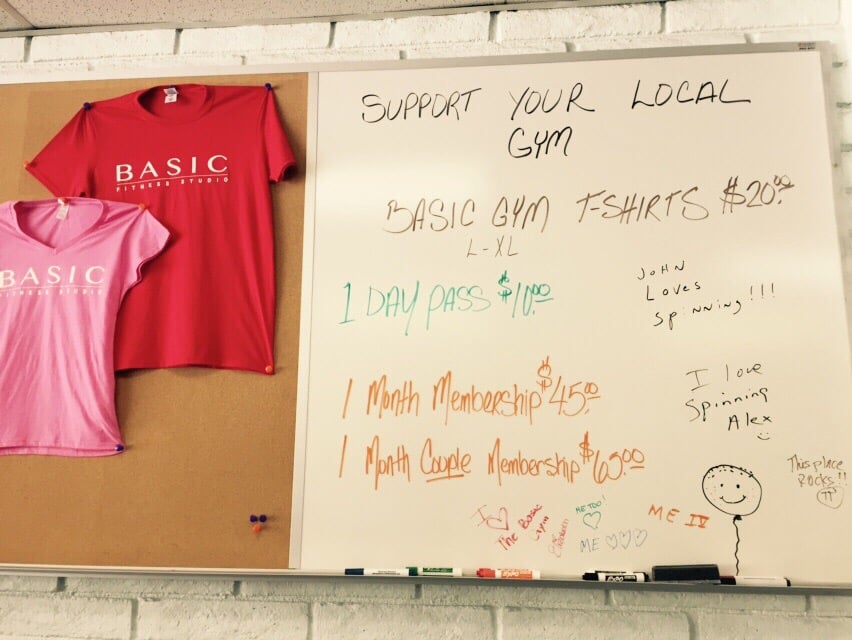 BASIC
FITNESS STUDIO
BASIC
FITNESS STUDIO
SUPPORT YOUR LOCAL
GYM
BASIC GYM T-SHIRTS $20.00
L-XL
1 DAY PASS $10.00
JOHN
Loves
Spinning!!!
1 Month Membership $45.00
I love
Spinning
Alex
1 Month Couple Membership $65.00
This place
Rocks!!
I
The Basic
Gym
ME TOO!
ME
ME IV